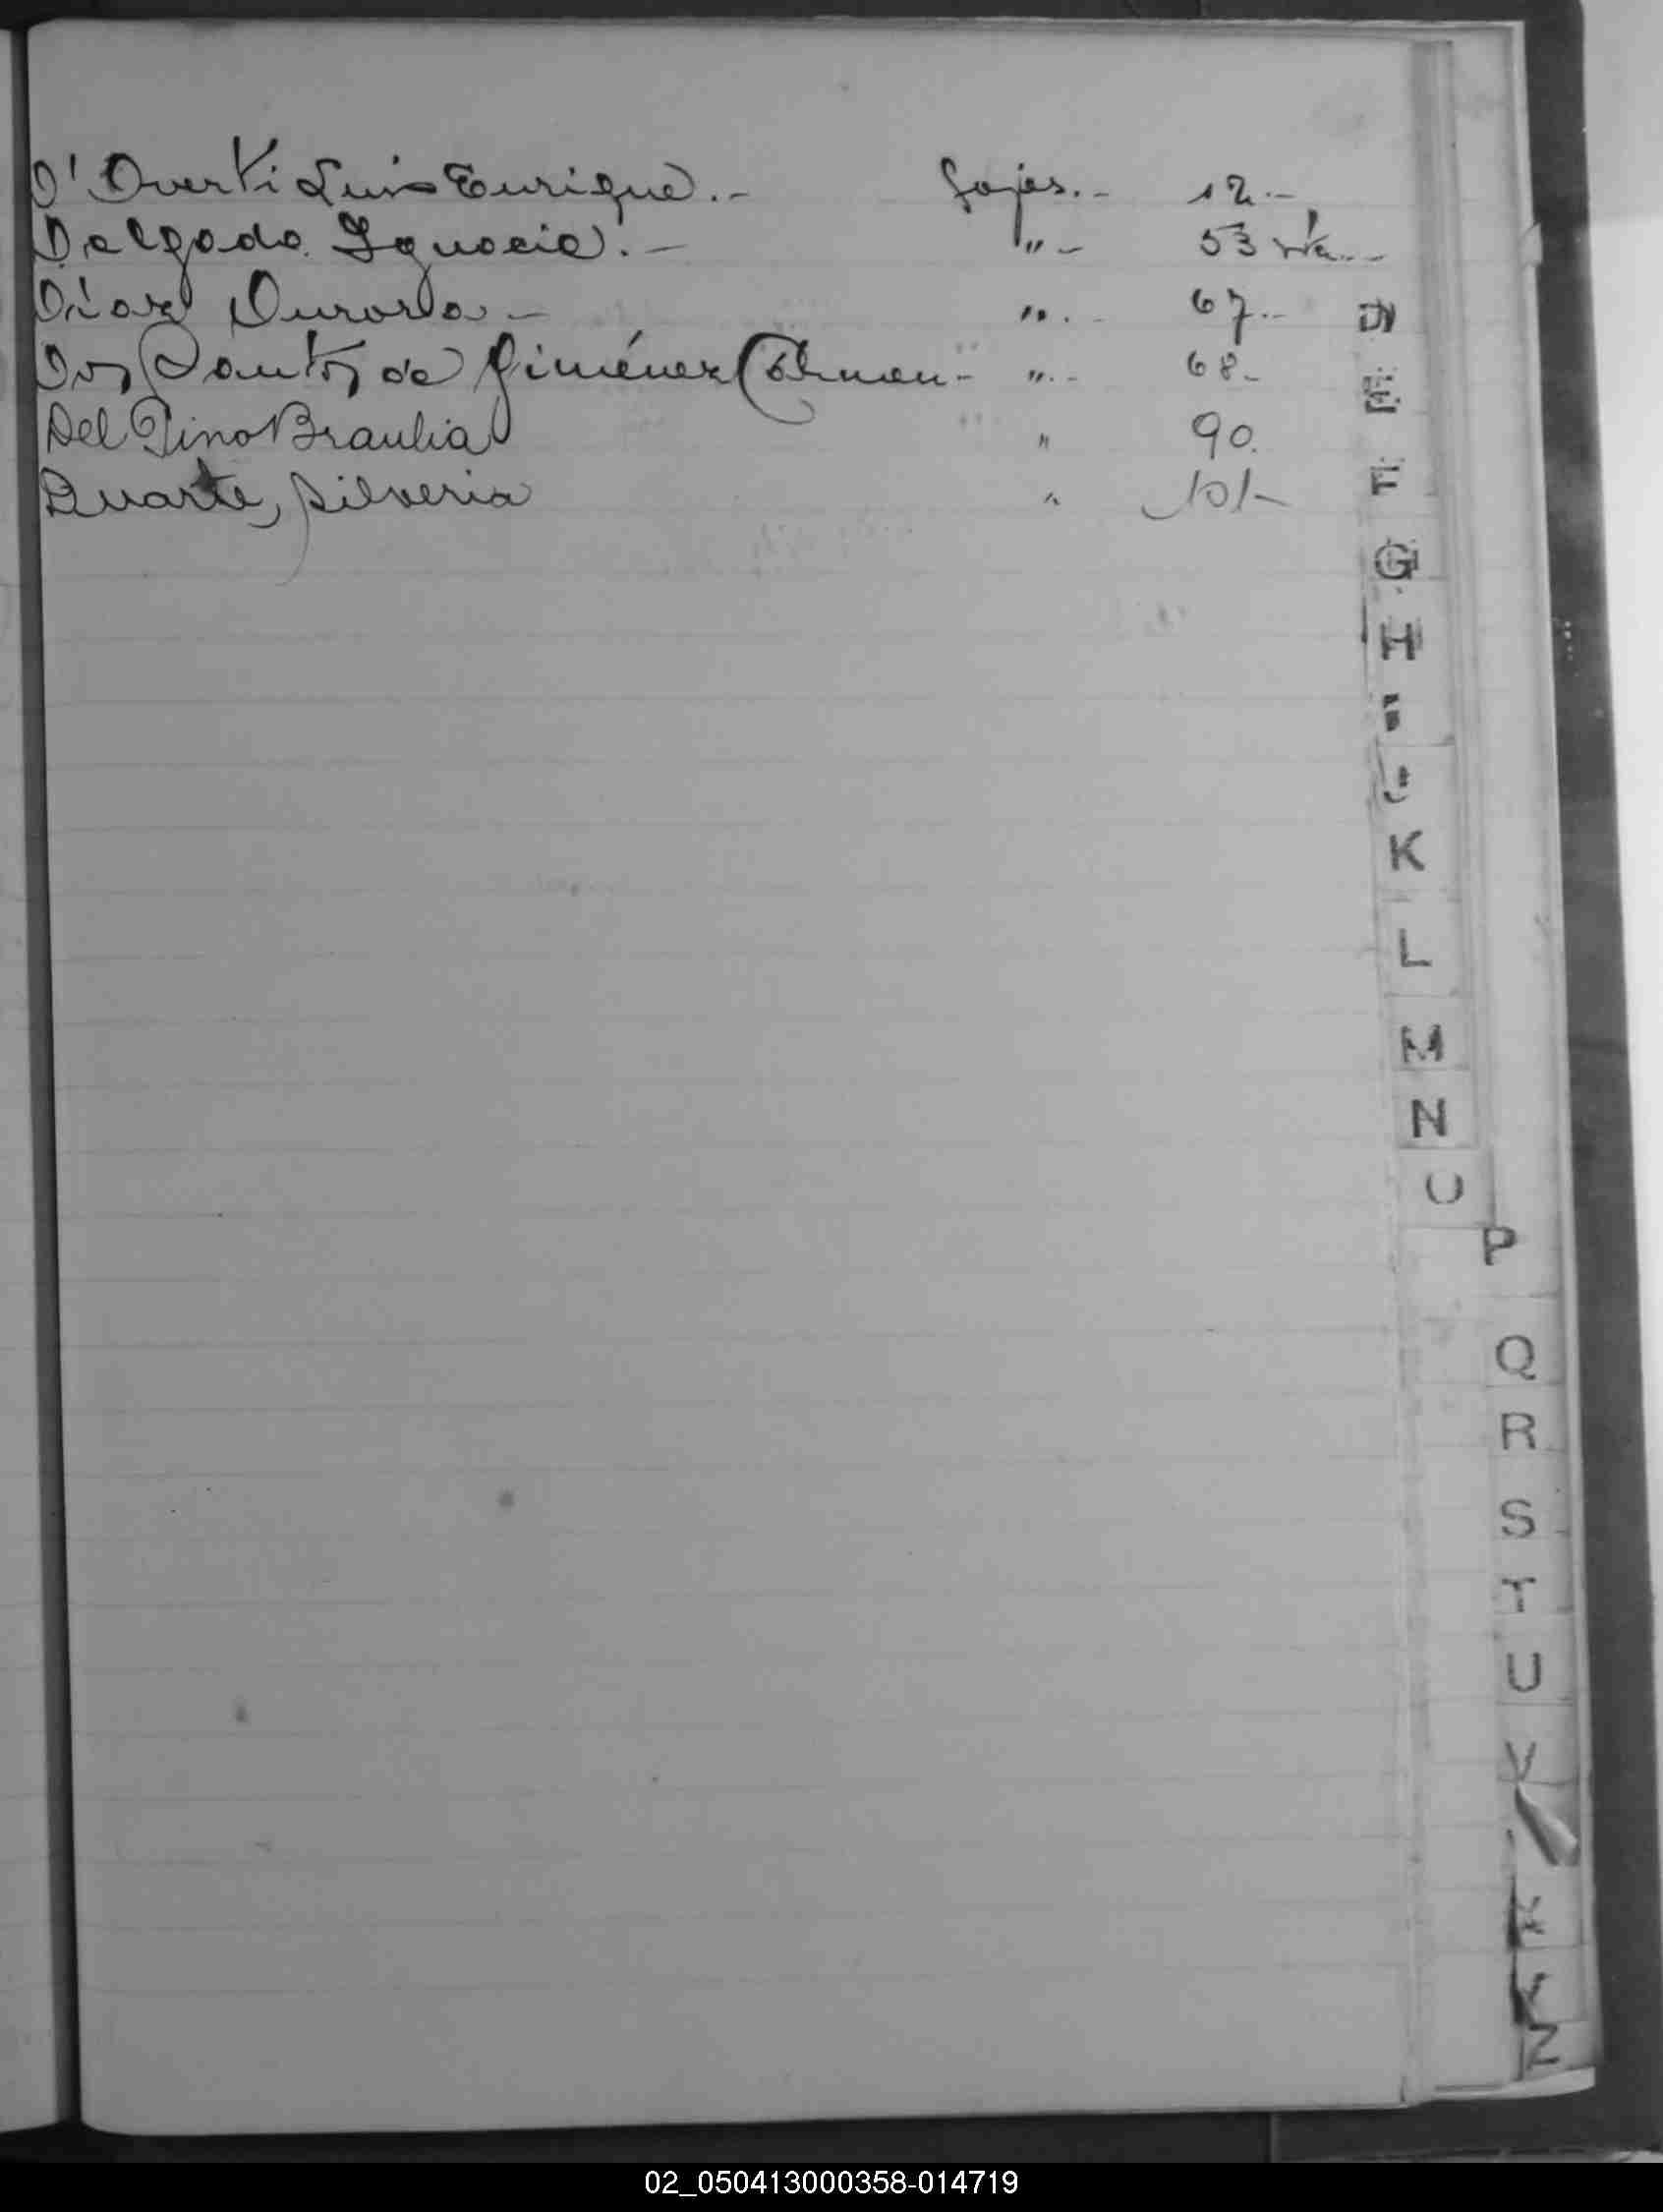 D' Overti Luis Enrique.- fojas.- 12.-
Delgado Ignacio.- "- 53 vta.-
Díaz Aurora.- ".- 67.-
Dos Santos de Giménez Carmen- ".- 68.-
Del Pino Braulia " 90.
Duarte, Silveria " 101-
D
E
F
G
H
I
J
K
L
M
N
O
P
Q
R
S
T
U
V
Y
Z
02_050413000358-014719